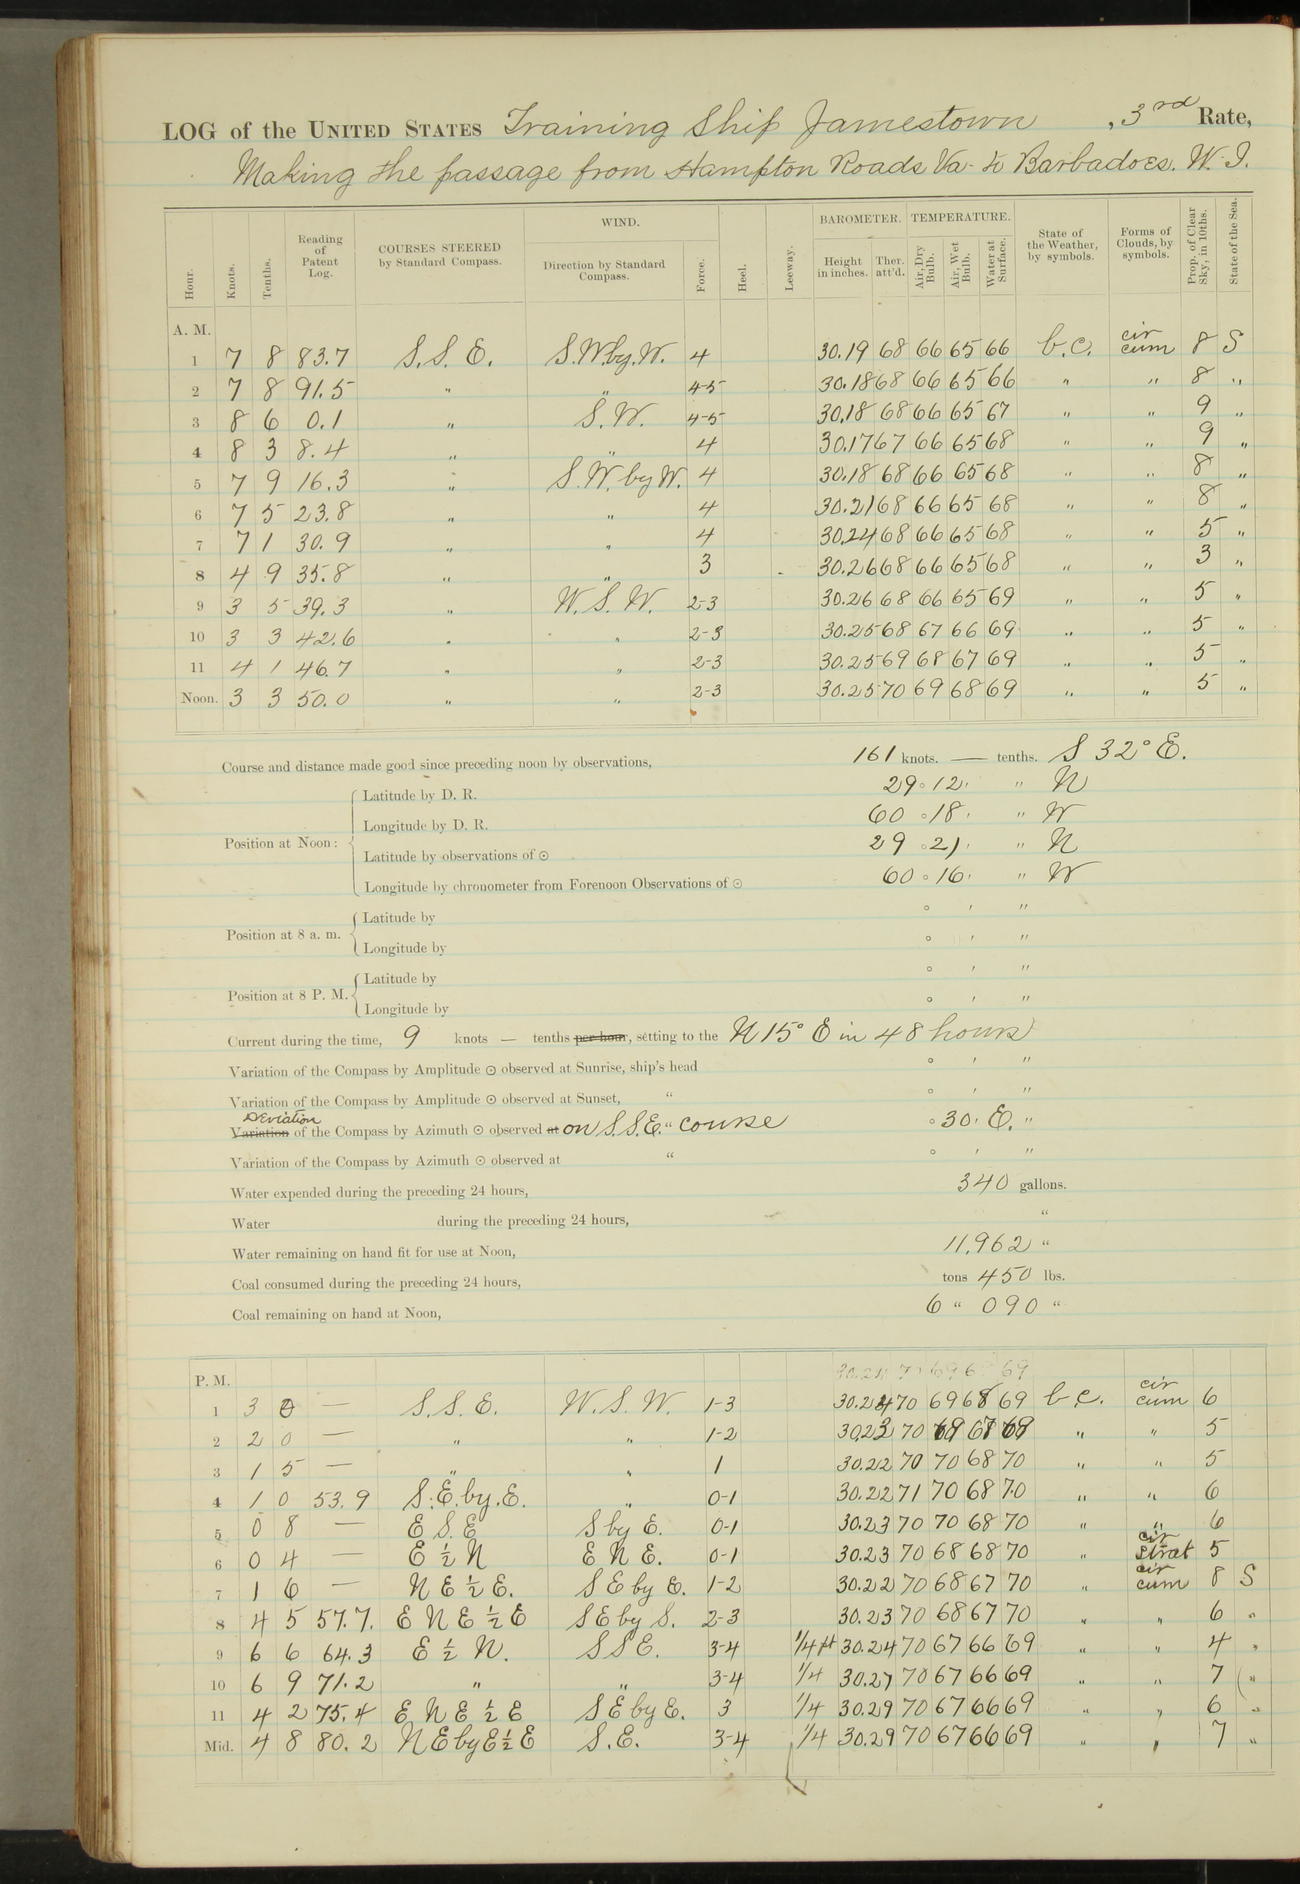 LOG of the UNITED STATES Training Ship Jamestown, 3rd Rate,
Making the passage from Hampton Roads Va. to Barbadoes. W. I.
Hour. Knots. Tenths. Reading of Patent Log. COURSES STEERED by Standard Compass. WIND. Direction by Standard Compass. Force. Heel. Leeway. BAROMETER. Height in inches. Ther. att'd. TEMPERATURE. Air, Dry Bulb. Air, Wet Bulb. Water at Surface. State of the Weather, by symbols. Forms of Clouds, by symbols. Prop. of Clear Sky, in 10ths. State of the Sea.
A. M.
1 7 8 83.7 S. S. E. S.W.by.W. 4 30.19 68 66 65 66 b.c. cir cum 8 S
2 7 8 91.5 " " 4-5 30.18 68 66 65 66 " " 8 "
3 8 6 0.1 " S.W. 4-5 30.18 68 66 65 67 " " 9 "
4 8 3 8.4 " " 4 30.17 67 66 65 68 " " 9 "
5 7 9 16.3 " S.W. by W. 4 30.18 68 66 65 68 " " 8 "
6 7 5 23.8 " " 4 30.21 68 66 65 68 " " 8 "
7 7 1 30.9 " " 4 30.24 68 66 65 68 " " 5 "
8 4 9 35.8 " " 3 30.26 68 66 65 68 " " 3 "
9 3 5 39.3 " W. S. W. 2-3 30.26 68 66 65 69 " " 5 "
10 3 3 42.6 " " 2-3 30.25 68 67 66 69 " " 5 "
11 4 1 46.7 " " 2-3 30.25 69 68 67 69 " " 5 "
Noon. 3 3 50.0 " " 2-3 30.25 70 69 68 69 " " 5 "
Course and distance made good since preceding noon by observations, 161 knots. — tenths. S 32° E.
Position at Noon:
Latitude by D. R. 29 ° 12 ' " N
Longitude by D. R. 60 ° 18 ' " W
Latitude by observations of ☉ 29 ° 21 ' " N
Longitude by chronometer from Forenoon Observations of ☉ 60 ° 16 ' " W
Position at 8 a. m.
Latitude by ° ' "
Longitude by ° ' "
Position at 8 P. M.
Latitude by ° ' "
Longitude by ° ' "
Current during the time, 9 knots — tenths per hour, setting to the N 15° E in 48 hours
Variation of the Compass by Amplitude ☉ observed at Sunrise, ship's head ° ' "
Variation of the Compass by Amplitude ☉ observed at Sunset, " ° ' "
Deviation
Variation of the Compass by Azimuth ☉ observed at on S.S.E. " course ° 30 ' E. "
Variation of the Compass by Azimuth ☉ observed at " ° ' "
Water expended during the preceding 24 hours, 340 gallons.
Water during the preceding 24 hours, "
Water remaining on hand fit for use at Noon, 11.962 "
Coal consumed during the preceding 24 hours, tons 450 lbs.
Coal remaining on hand at Noon, 6 " 090 "
P. M.
1 3 0 — S. S. E. W. S. W. 1-3 30.24 70 69 68 69 b c. cir cum 6
2 2 0 — " " 1-2 30.23 70 69 67 69 " " 5
3 1 5 — " " 1 30.22 70 70 68 70 " " 5
4 1 0 53.9 S. E. by. E. " 0-1 30.22 71 70 68 70 " " 6
5 0 8 — E S. E S by E. 0-1 30.23 70 70 68 70 " " 6
6 0 4 — E ½ N E N E. 0-1 30.23 70 68 68 70 " cir strat 5
7 1 6 — N E ½ E. S E by E. 1-2 30.22 70 68 67 70 cir cum 8 S
8 4 5 57.7. E N E ½ E S E by S. 2-3 30.23 70 68 67 70 " " 6 "
9 6 6 64.3 E ½ N. S S E. 3-4 1/4 pt 30.24 70 67 66 69 " " 4 "
10 6 9 71.2 " " 3-4 1/4 30.27 70 67 66 69 " " 7 "
11 4 2 75.4 E N E ½ E S E by E. 3 1/4 30.29 70 67 66 69 " " 6 "
Mid. 4 8 80.2 N E by E ½ E S. E. 3-4 1/4 30.29 70 67 66 69 " " 7 "